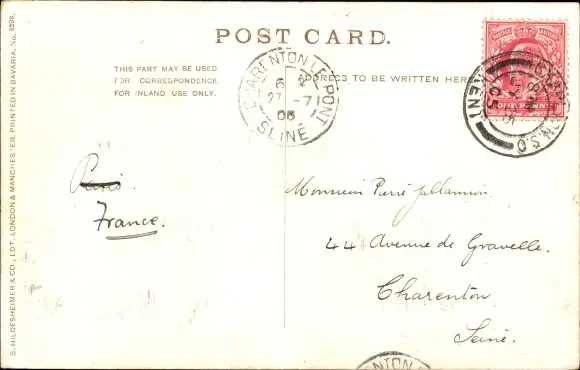 POST CARD.
THIS PART MAY BE USED
FOR CORRESPONDENCE
FOR INLAND USE ONLY.
ADDRESS TO BE WRITTEN HERE
CHARENTON LE PONT
6
27 -7
05
SEINE
ONE PENNY
N.S.O.
Paris.
France.
Monsieur Pierre
44 Avenue de Gravelle.
Charenton
Seine.
S. HILDESHEIMER & CO., LDT. LONDON & MANCHESTER. PRINTED IN BAVARIA. No. 5298.